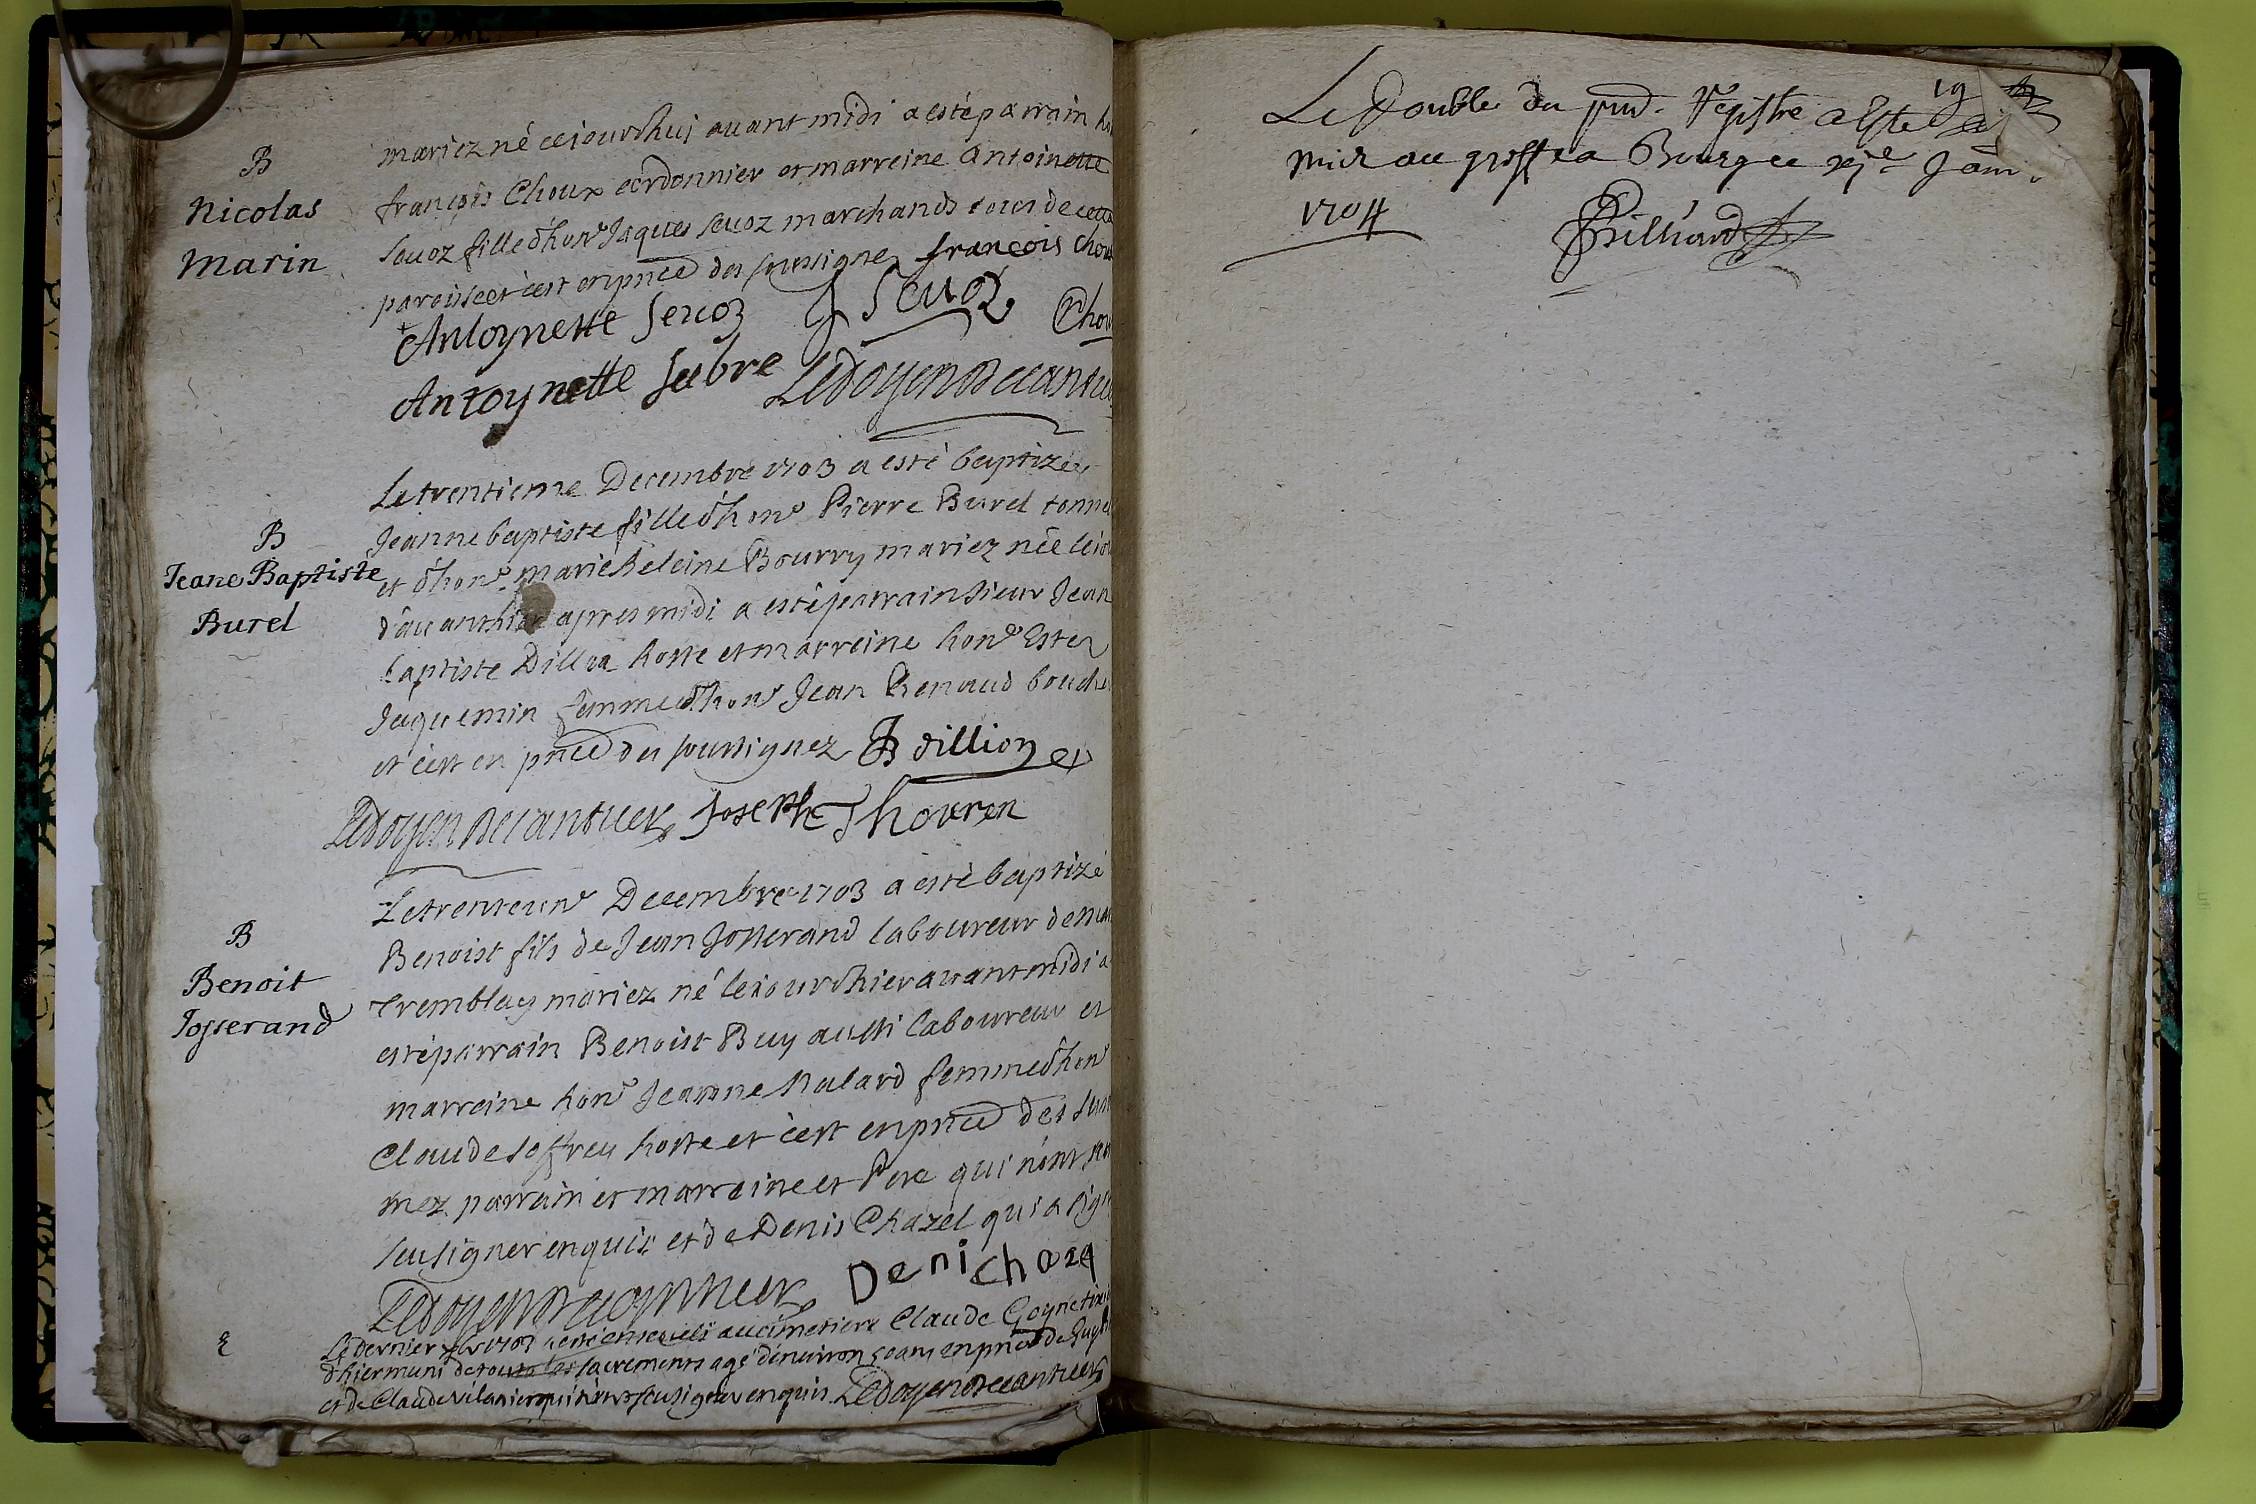 B
Nicolas
Marin
mariez né cejourdhuj avant midi a esté parrain
françois Choux cordonnier et marreine Antoinette
Sevoz fille d'hon^e Jaques Sevoz marchands tous de cette
paroisse et c'est en pnce des soussignez françois Chou
Antoynette Sevoz J Sevoz Chou
Antoynette Subre Le doyen Decantu
B
Jeane Baptiste
Burel
Le trentieme Decembre 1703 a esté baptizee
Jeanne baptiste fille d'hon^e Pierre Burel tonne
et d'hon^e marie heleine Bourry mariez née le jou
d'avanthier apres midi a esté parrain sieur Jean
baptiste Dillon hoste et marreine hon^e Ester
Jaquemin femme d'hon^e Jean Renaud bouche
et c'est en pnce des soussignez JB dillion
Ledoyen Decantuer Joseph Thouren
B
Benoit
Josserand
Le trente un^e Decembre 1703 a esté baptizé
Benoist fils de Jean Josserand laboureur de
Tremblay mariez né le jourdhier avant midi a
esté parrain Benoist Buy aussi laboureur et
marreine hon^e Jeanne Nalard femme d'hon^e
Claude Joffrey hoste et c'est en pnce des sus
mez parrain et marreine et Pere qui n'ont
seu signer enquis et de Denis Chazel qui a sign
Ledoyen Decantuer Denichazel
E
Le dernier xbre 1703 a esté enseveli au cimetiere Claude Goynet
d'hier muni de tous les sacrements agé d'environ 50 ans en pnce de Guy
et de Claude qui n'ont seu signer enquis Ledoyen Decantuer
19
Le Double du pnt Registre a esté
mis au greffe a Bourg ce xj^e Janv
1704
Brilliard